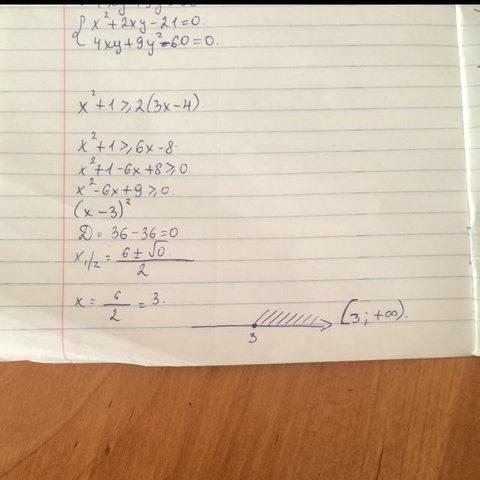 x²+2xy-21=0.
4xy+9y²-60=0.
x²+1≥2(3x-4).
x²+1≥6x-8.
x²+1-6x+8≥0.
x²-6x+9≥0.
(x-3)²
D=36-36=0
x₁/₂=(6±√0)/2
x=6/2=3.
3
[3;+∞).